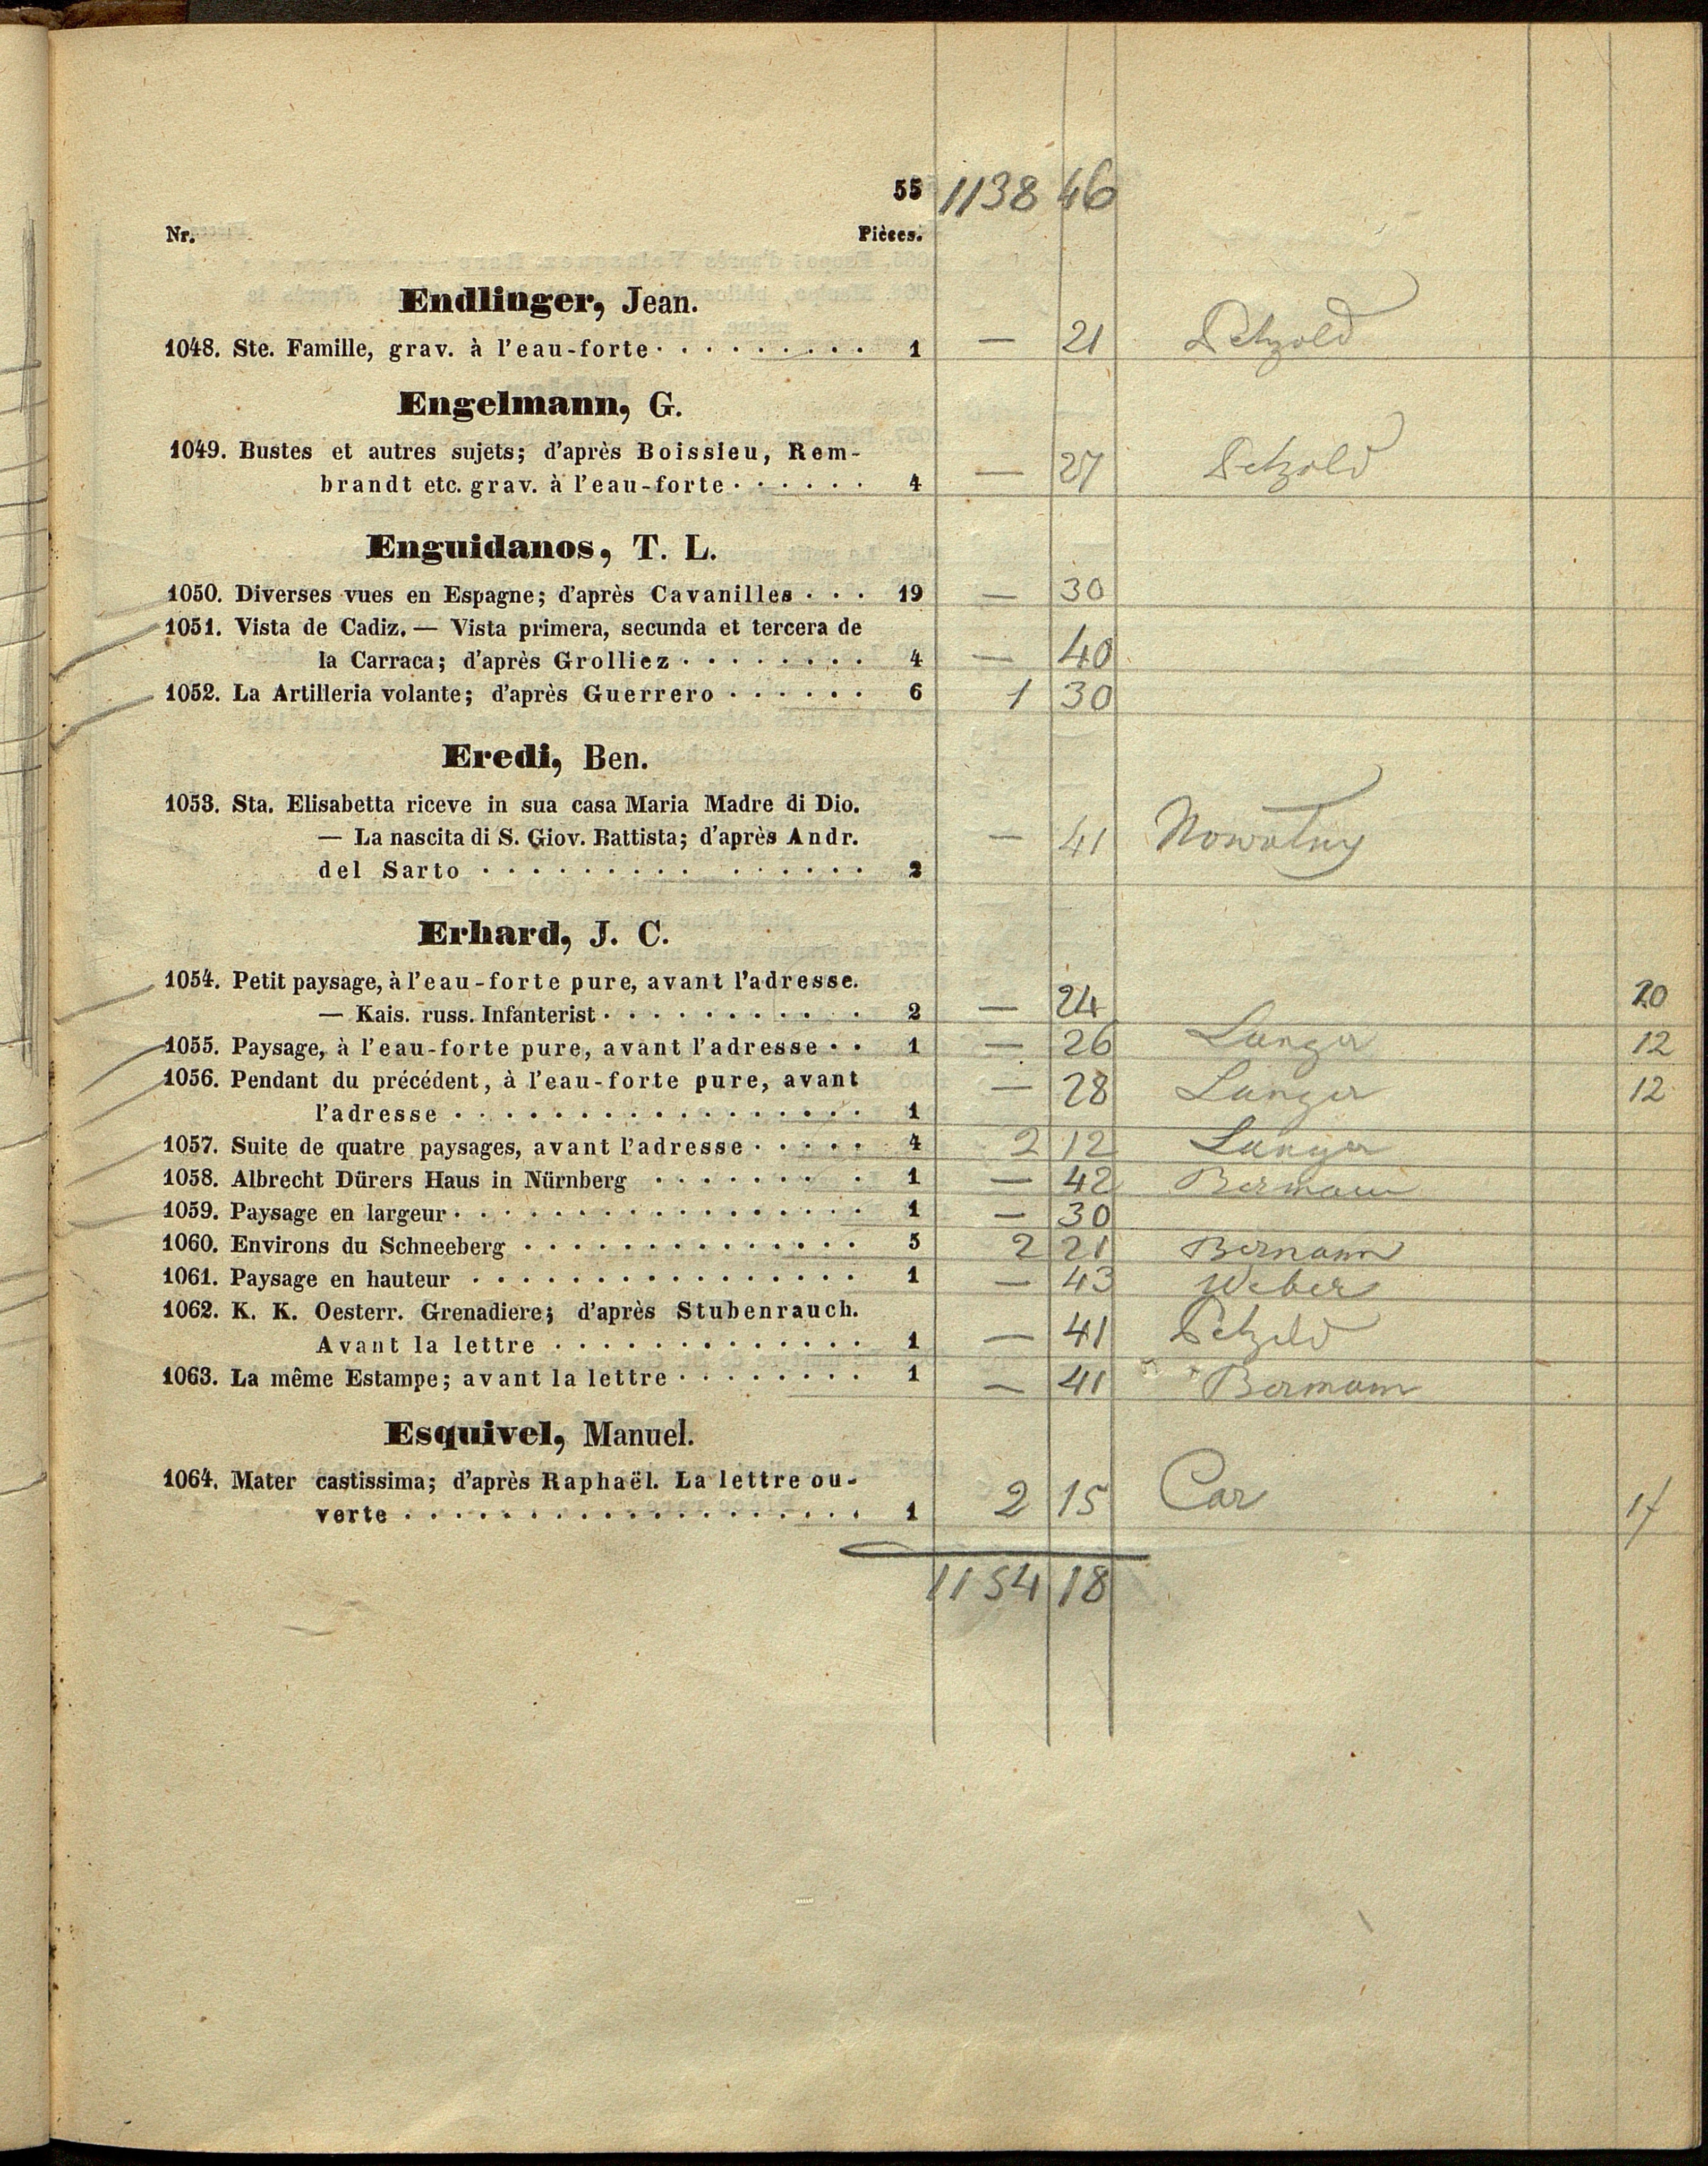 55 1138 46
Nr. Pièces.
Endlinger, Jean.
1048. Ste. Famille, grav. à l'eau-forte · · · · · · · · · 1 — 21 Petzold
Engelmann, G.
1049. Bustes et autres sujets; d'après Boissieu, Rem-
brandt etc. grav. à l'eau-forte · · · · · · 4 — 27 Petzold
Enguidanos, T. L.
1050. Diverses vues en Espagne; d'après Cavanilles · · · 19 — 30
1051. Vista de Cadiz. — Vista primera, secunda et tercera de
la Carraca; d'après Grolliez · · · · · · · · 4 — 40
1052. La Artilleria volante; d'après Guerrero · · · · · · 6 1 30
Eredi, Ben.
1053. Sta. Elisabetta riceve in sua casa Maria Madre di Dio.
— La nascita di S. Giov. Battista; d'après Andr. — 41 Nowotny
del Sarto · · · · · · · · · · · · · · · · 2
Erhard, J. C.
1054. Petit paysage, à l'eau-forte pure, avant l'adresse.
— Kais. russ. Infanterist · · · · · · · · · · · 2 — 24 20
1055. Paysage, à l'eau-forte pure, avant l'adresse · · 1 — 26 Langer 12
1056. Pendant du précédent, à l'eau-forte pure, avant — 28 Langer 12
l'adresse · · · · · · · · · · · · · · · · · 1
1057. Suite de quatre paysages, avant l'adresse · · · · · 4 2 12 Langer
1058. Albrecht Dürers Haus in Nürnberg · · · · · · · · 1 — 42 Bermann
1059. Paysage en largeur · · · · · · · · · · · · · · · · · 1 — 30
1060. Environs du Schneeberg · · · · · · · · · · · · · · 5 2 21 Bermann
1061. Paysage en hauteur · · · · · · · · · · · · · · · · 1 — 43 Weber
1062. K. K. Oesterr. Grenadiere; d'après Stubenrauch.
Avant la lettre · · · · · · · · · · · · · 1 — 41 Petzold
1063. La même Estampe; avant la lettre · · · · · · · · 1 — 41 Bermann
Esquivel, Manuel.
1064. Mater castissima; d'après Raphaël. La lettre ou-
verte · · · · · · · · · · · · · · · · · · · 1 2 15 Car 17
1154 18